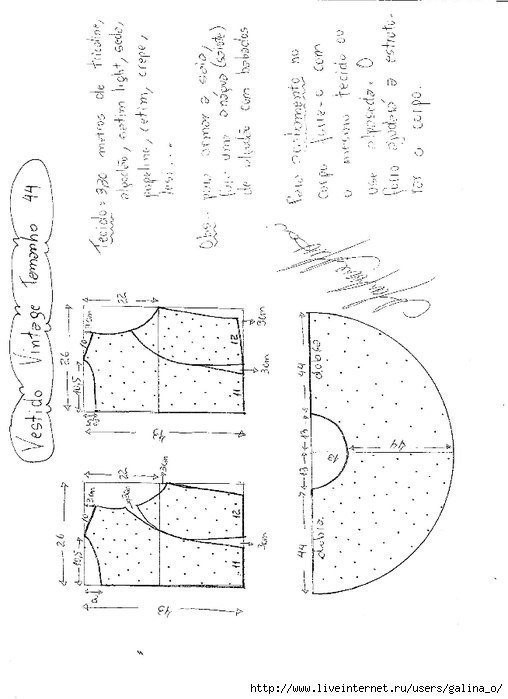 Vestido Vintage Tamanho 44
Tecido = 3,20 metros de tricoline,
algodão, cetim light, seda,
popeline, cetim, crepe,
Obs.. para armar a saia,
faça uma anágua (saiote)
de algodão com babados
Para acabamento no
corpo forre-o com
o mesmo tecido ou
use
forro ajudará a estrutu-
rar o corpo.
26
22
10,5
10
3cm
43
11
12
3cm
26
22
10,5
10
43
11
12
3cm
3cm
44
13
13
44
dobra
dobra
12
44
http://www.liveinternet.ru/users/galina_o/